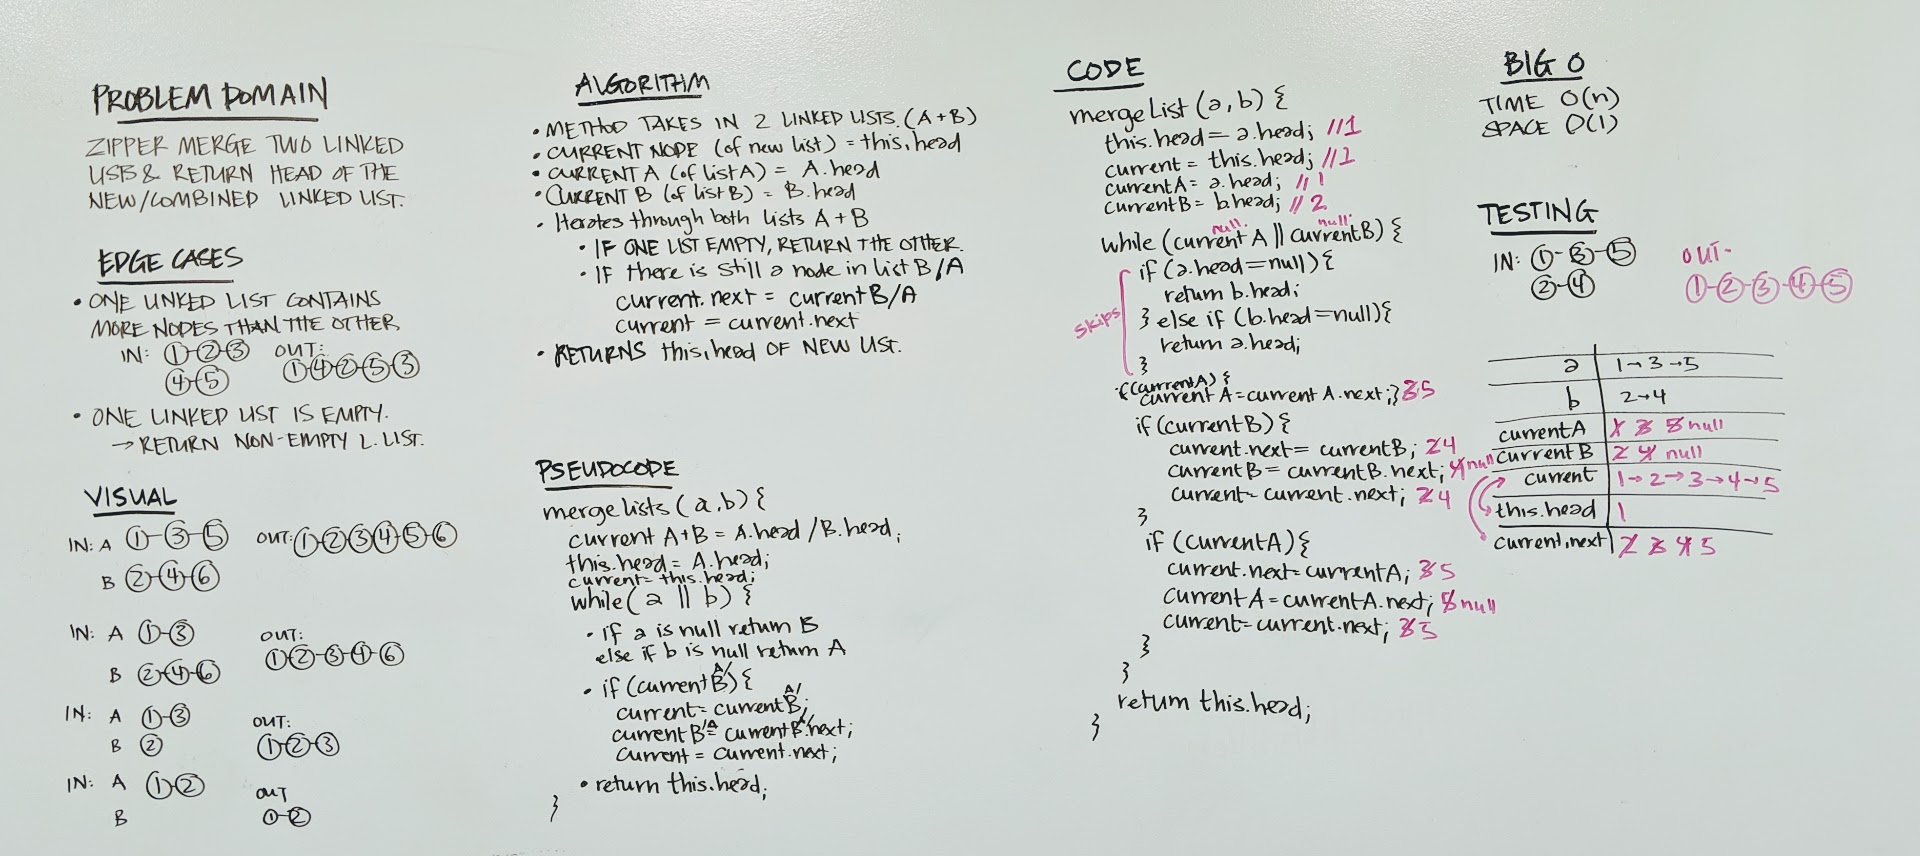 PROBLEM DOMAIN
ZIPPER MERGE TWO LINKED
LISTS & RETURN HEAD OF THE
NEW/COMBINED LINKED LIST.
EDGE CASES
• ONE LINKED LIST CONTAINS
MORE NODES THAN THE OTHER
IN: 1-2-3 OUT:
4-5 1-4-2-5-3
• ONE LINKED LIST IS EMPTY.
→ RETURN NON-EMPTY L. LIST.
VISUAL
IN: A 1-3-5 OUT: 1-2-3-4-5-6
B 2-4-6
IN: A 1-3 OUT:
B 2-4-6 1-2-3-4-6
IN: A 1-3 OUT:
B 2 1-2-3
IN: A 1-2 OUT
B 1-2
ALGORITHM
• METHOD TAKES IN 2 LINKED LISTS (A+B)
• CURRENT NODE (of new list) = this.head
• CURRENT A (of list A) = A.head
• CURRENT B (of list B) = B.head
• Iterates through both lists A+B
• IF ONE LIST EMPTY, RETURN THE OTHER.
• IF there is still a node in list B/A
current.next = currentB/A
current = current.next
• RETURNS this.head OF NEW LIST.
PSEUDOCODE
mergeLists (a,b) {
current A+B = A.head / B.head;
this.head = A.head;
current = this.head;
while (a || b) {
• if a is null return B
else if b is null return A
• if (current A/B) {
current = current A/B;
current B/A = current B/A.next;
current = current.next;
• return this.head;
}
CODE
mergeList (a,b) {
this.head = a.head; //1
current = this.head; //1
currentA = a.head; //1
currentB = b.head; //2
null null
while (current A || currentB) {
if (a.head = null) {
return b.head;
skips } else if (b.head = null) {
return a.head;
}
if(currentA) {
current A = current A.next;} 3 5
if (currentB) {
current.next = currentB; 2 4
currentB = currentB.next; 4 null
current = current.next; 2 4
}
if (currentA) {
current.next = currentA; 3 5
currentA = currentA.next; 5 null
current = current.next; 3 5
}
}
return this.head;
}
BIG O
TIME O(n)
SPACE O(1)
TESTING
IN: 1-3-5 OUT-
2-4 1-2-3-4-5
a 1→3→5
b 2→4
currentA 1 3 5 null
currentB 2 4 null
current 1→2→3→4→5
this.head 1
current.next 2 3 4 5